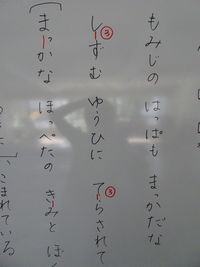 もみじの はっぱも まっかだな
しずむ ゆうひに てらされて
③ ③
まっかな ほっぺたの きみと ぼく
こまれている